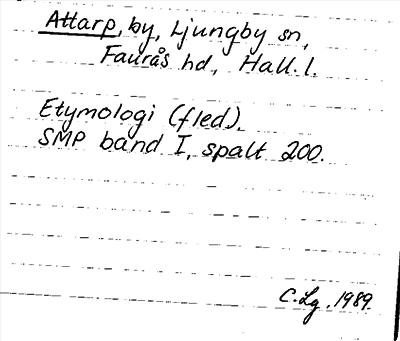 Attarp, by, Ljungby sn,
Faurås hd, Hall. l.
Etymologi (fled).
SMP band I, spalt 200.
C. Lg. 1989.